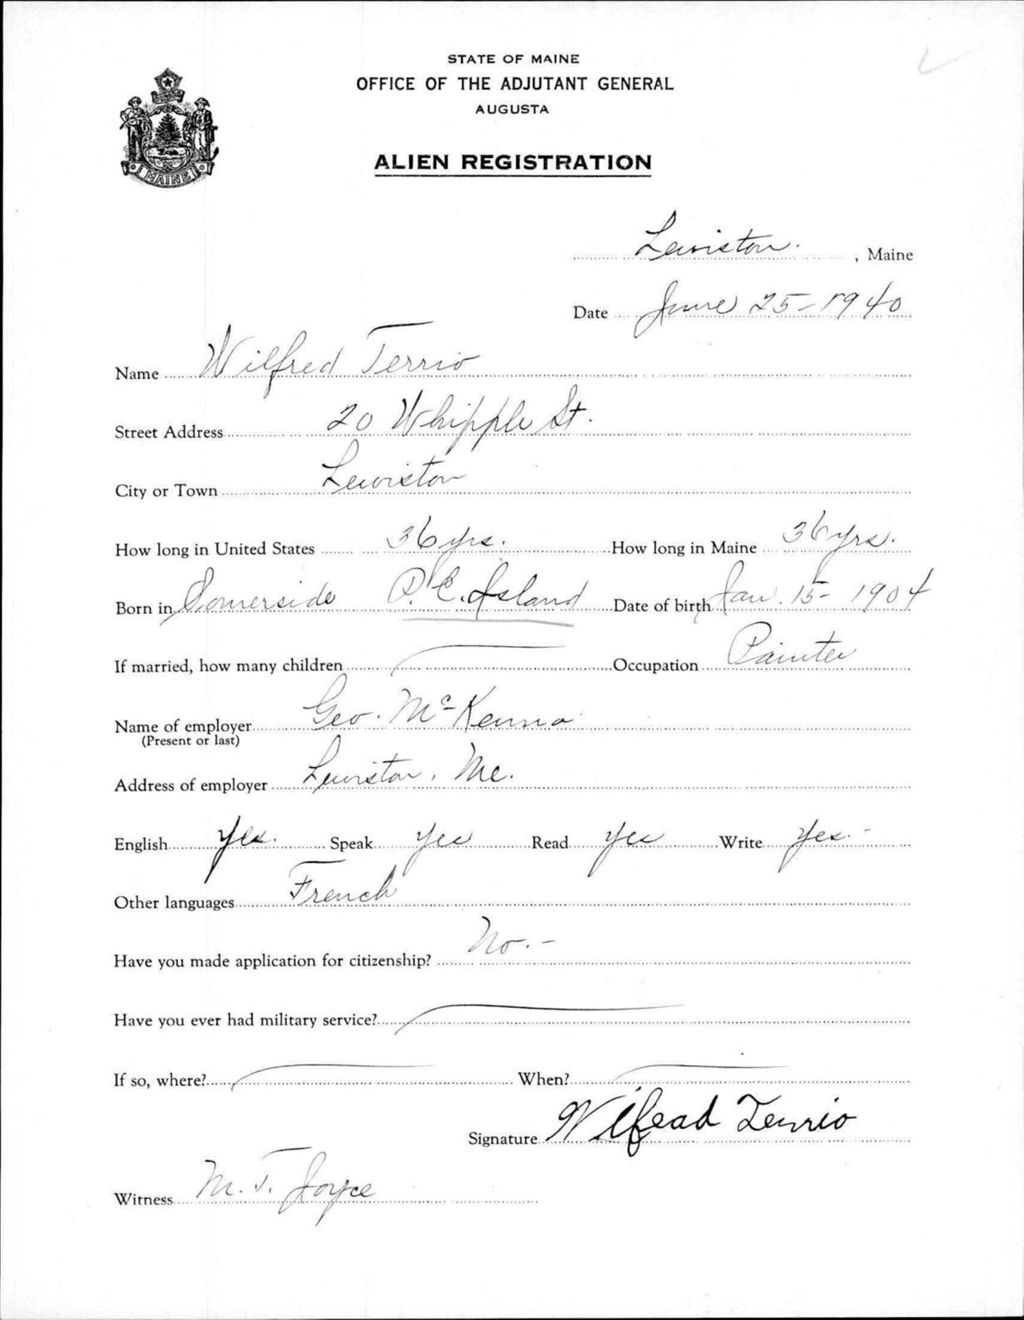 STATE OF MAINE
OFFICE OF THE ADJUTANT GENERAL
AUGUSTA
MAINE
ALIEN REGISTRATION
Lewiston. , Maine
Date June 25-1940
Name Wilfred Terrio
Street Address 20 Whipple St.
City or Town Lewiston
How long in United States 36 yrs. How long in Maine 36 yrs.
Born in Somerside P.E. Island Date of birth Jan. 15- 1904
If married, how many children Occupation Painter
Name of employer Geo. McKenna
(Present or last)
Address of employer Lewiston, Me.
English Yes. Speak Yes Read Yes Write Yes.-
Other languages French
Have you made application for citizenship? No.-
Have you ever had military service?
If so, where? When?
Signature Wilfead Terrio
Witness M. T. Joyce